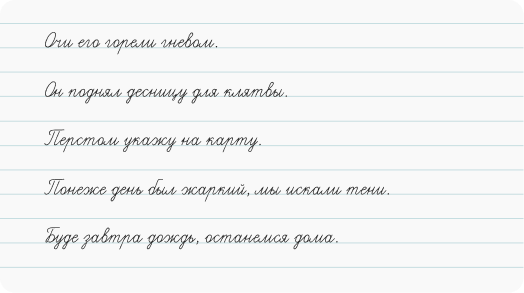 Очи его горели гневом.
Он поднял десницу для клятвы.
Перстом укажу на карту.
Понеже день был жаркий, мы искали тени.
Буде завтра дождь, останемся дома.